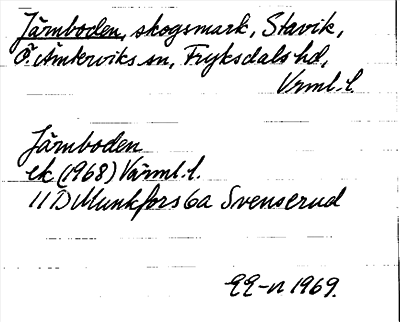 Järnboden, skogsmark, Stavik,
Ö. Ämterviks sn, Fryksdals hd,
Vrml. l.
Järnboden
ek (1968) Värml. l.
11 D Munkfors 6a Svenserud
1969.